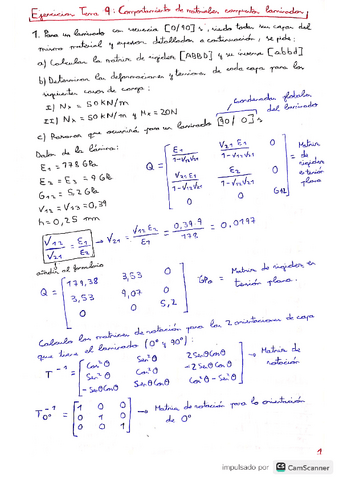 Ejercicios Tema 9: Comportamiento de materiales compuestos laminados
1. Para un laminado con secuencia [0/90]s, siendo todas sus capas del
mismo material y espesor detallados a continuación, se pide:
a) Calcular la matriz de rigidez [ABBD] y su inversa [abbd]
b) Determinar las deformaciones y tensiones de cada capa para los
siguientes casos de carga:
I) Nx = 50 KN/m
II) Nx = 50 KN/m y Mx = 20N
c) Razonar que ocurriría para un laminado [90/0]s
coordenadas globales
del laminado
Datos de la lámina:
E1 = 178 GPa
E2 = E3 = 9 GPa
G12 = 5,2 GPa
V12 = V13 = 0,39
h = 0,25 mm
Q = [ E1/1-V12V21 V21 E1/1-V12V21 0
V21 E1/1-V12V21 E2/1-V12V21 0
0 0 G12 ] = Matriz de rigidez en tensión plana
V12/V21 = E1/E2 → V21 = V12 E2/E1 = 0,39·9/178 = 0,0197
añadir al formulario
Q = [ 179,38 3,53 0
3,53 9,07 0
0 0 5,2 ] GPa = Matriz de rigidez en
tensión plana.
Calcula las matrices de rotación para las 2 orientaciones de capa
que tiene el laminado (0° y 90°):
T⁻¹ = [ Cos²θ Sen²θ 2SenθCosθ
Sen²θ Cos²θ -2SenθCosθ
-SenθCosθ SenθCosθ Cos²θ-Sen²θ ] → Matriz de
rotación
T⁻¹0° = [ 1 0 0
0 1 0
0 0 1 ] → Matriz de rotación para la orientación
de 0°
1
impulsado por CS CamScanner